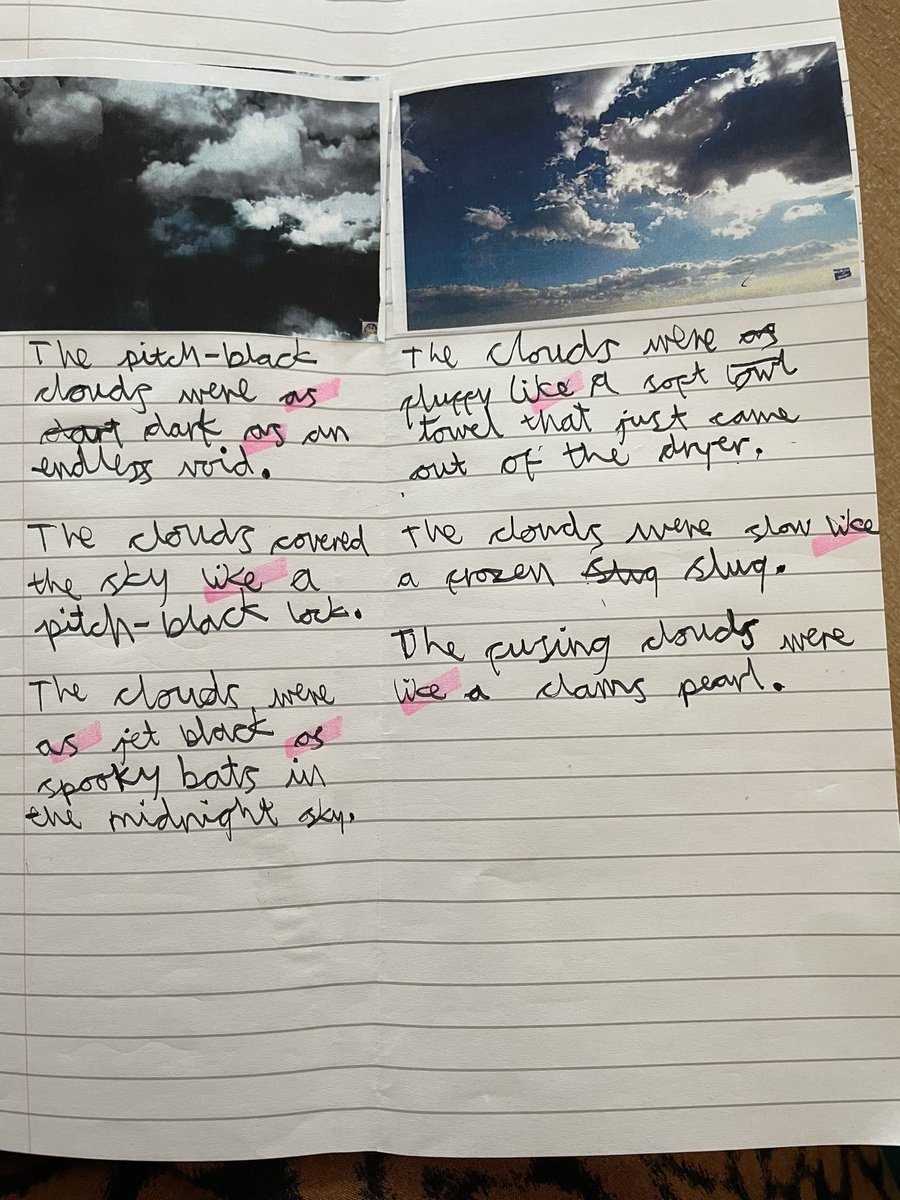 The pitch-black
clouds were as
dart dark as an
endless void.
The clouds covered
the sky like a
pitch-black lock.
The clouds were
as jet black as
spooky bats in
the midnight sky.
The clouds were as
fluffy like a soft towl
towel that just came
out of the dryer.
The clouds were slow like
a frozen slug slug.
The fusing clouds were
like a clams pearl.